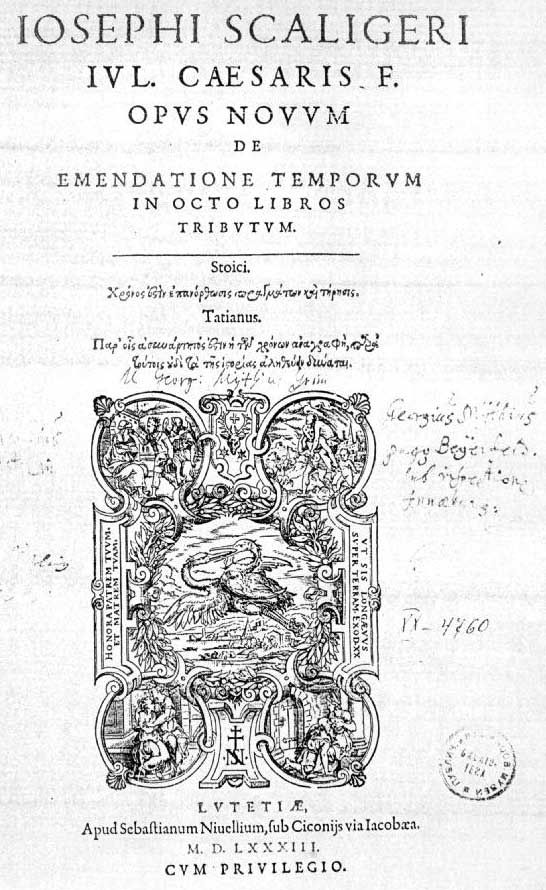 IOSEPHI SCALIGERI
IVL. CAESARIS F.
OPVS NOVVM
DE
EMENDATIONE TEMPORVM
IN OCTO LIBROS
TRIBVTVM.
Stoici.
Χρόνος ἐστὶν ἐπανόρθωσις πραγμάτων καὶ τήρησις.
Tatianus.
Παρ' οἷς ἀσυνάρτητός ἐστιν ἡ τῶν χρόνων ἀναγραφὴ, παρὰ
τούτοις οὐδὲ τὰ τῆς ἱστορίας ἀληθεύειν δύναται.
M Georg:
Georgius
HONORA PATREM TVVM,
ET MATREM TVAM.
VT SIS LONGÆVVS
SVPER TERRAM. EXOD. XX
4760
LVTETIÆ,
Apud Sebastianum Niuellium, sub Ciconijs via Iacobæa.
M. D. LXXXIII.
CVM PRIVILEGIO.